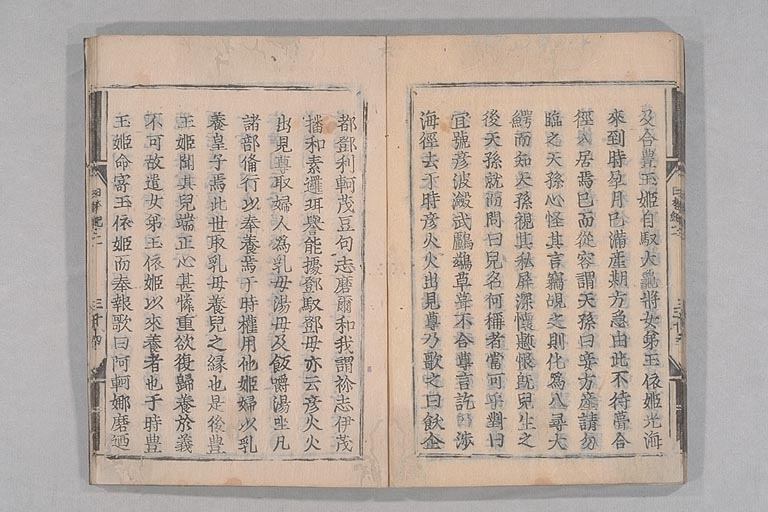 及合豊玉姫自馭大龜將女弟玉依姫光海
來到時孕月已滿產期方急由此不待葺合
徑入居焉已而從容謂天孫曰妾方產請勿
臨之天孫心怪其言竊覘之則化為八尋大
鰐而知天孫視其私屏深懷慙恨既兒生之
後天孫就而問曰兒名何稱者當可乎對曰
宜號彦波瀲武鸕鷀草葺不合尊言訖乃渉
海徑去于時彦火火出見尊乃歌之曰飫企
都鄧利軻茂豆句志磨爾和我謂祢志伊茂
播和素邏珥譽能據鄧馭鄧母亦云彦火火
出見尊取婦人為乳母湯母及飯嚼湯坐凡
諸部備行以奉養焉于時權用他姫婦以乳
養皇子焉此世取乳母養兒之緣也是後豊
玉姫聞其兒端正心甚憐重欲復歸養於義
不可故遣女弟玉依姫以來養者也于時豊
玉姫命寄玉依姫而奉報歌曰阿軻娜磨廼